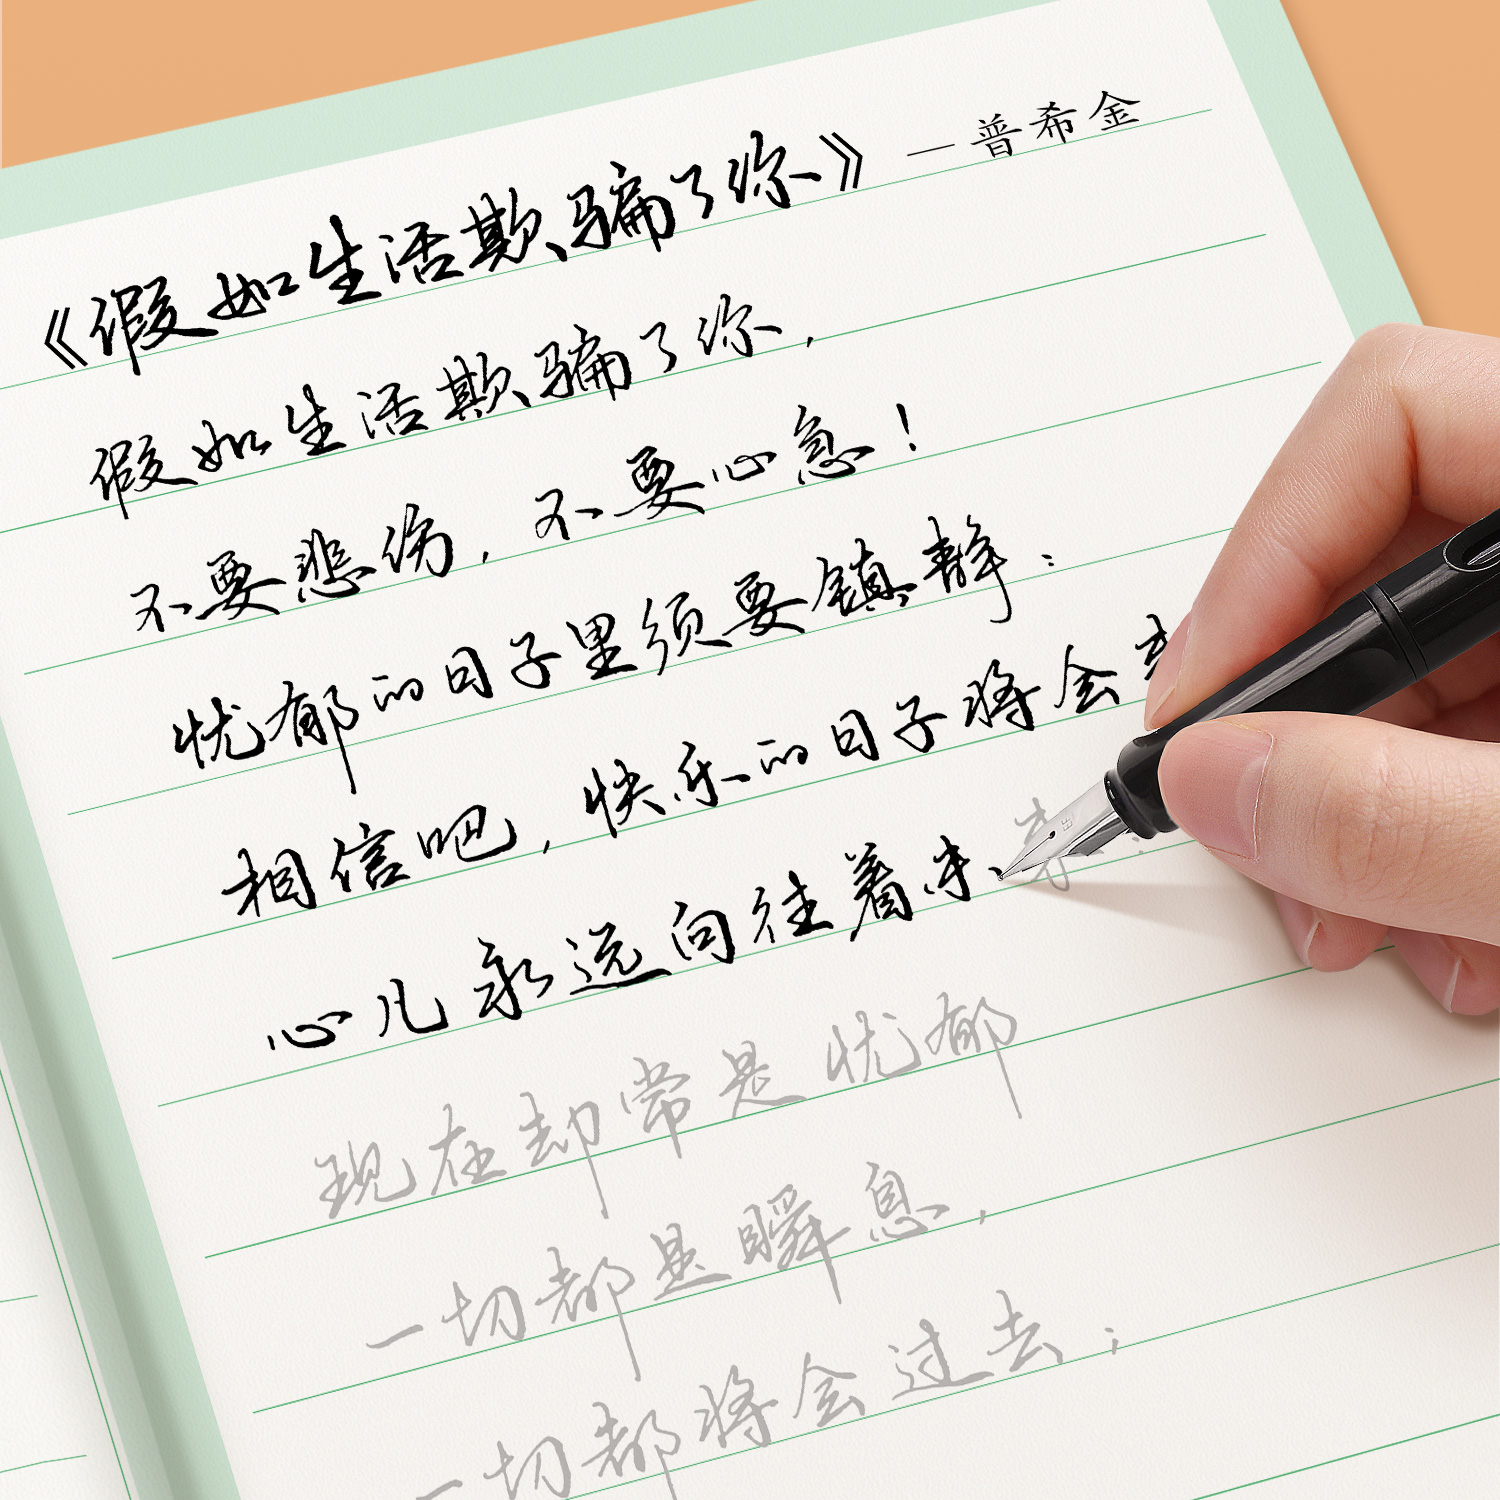 《假如生活欺骗了你》—普希金
假如生活欺骗了你，
不要悲伤，不要心急！
忧郁的日子里须要镇静：
相信吧，快乐的日子将会
心儿永远向往着未
现在却常是忧郁
一切都是瞬息，
一切都将会过去；